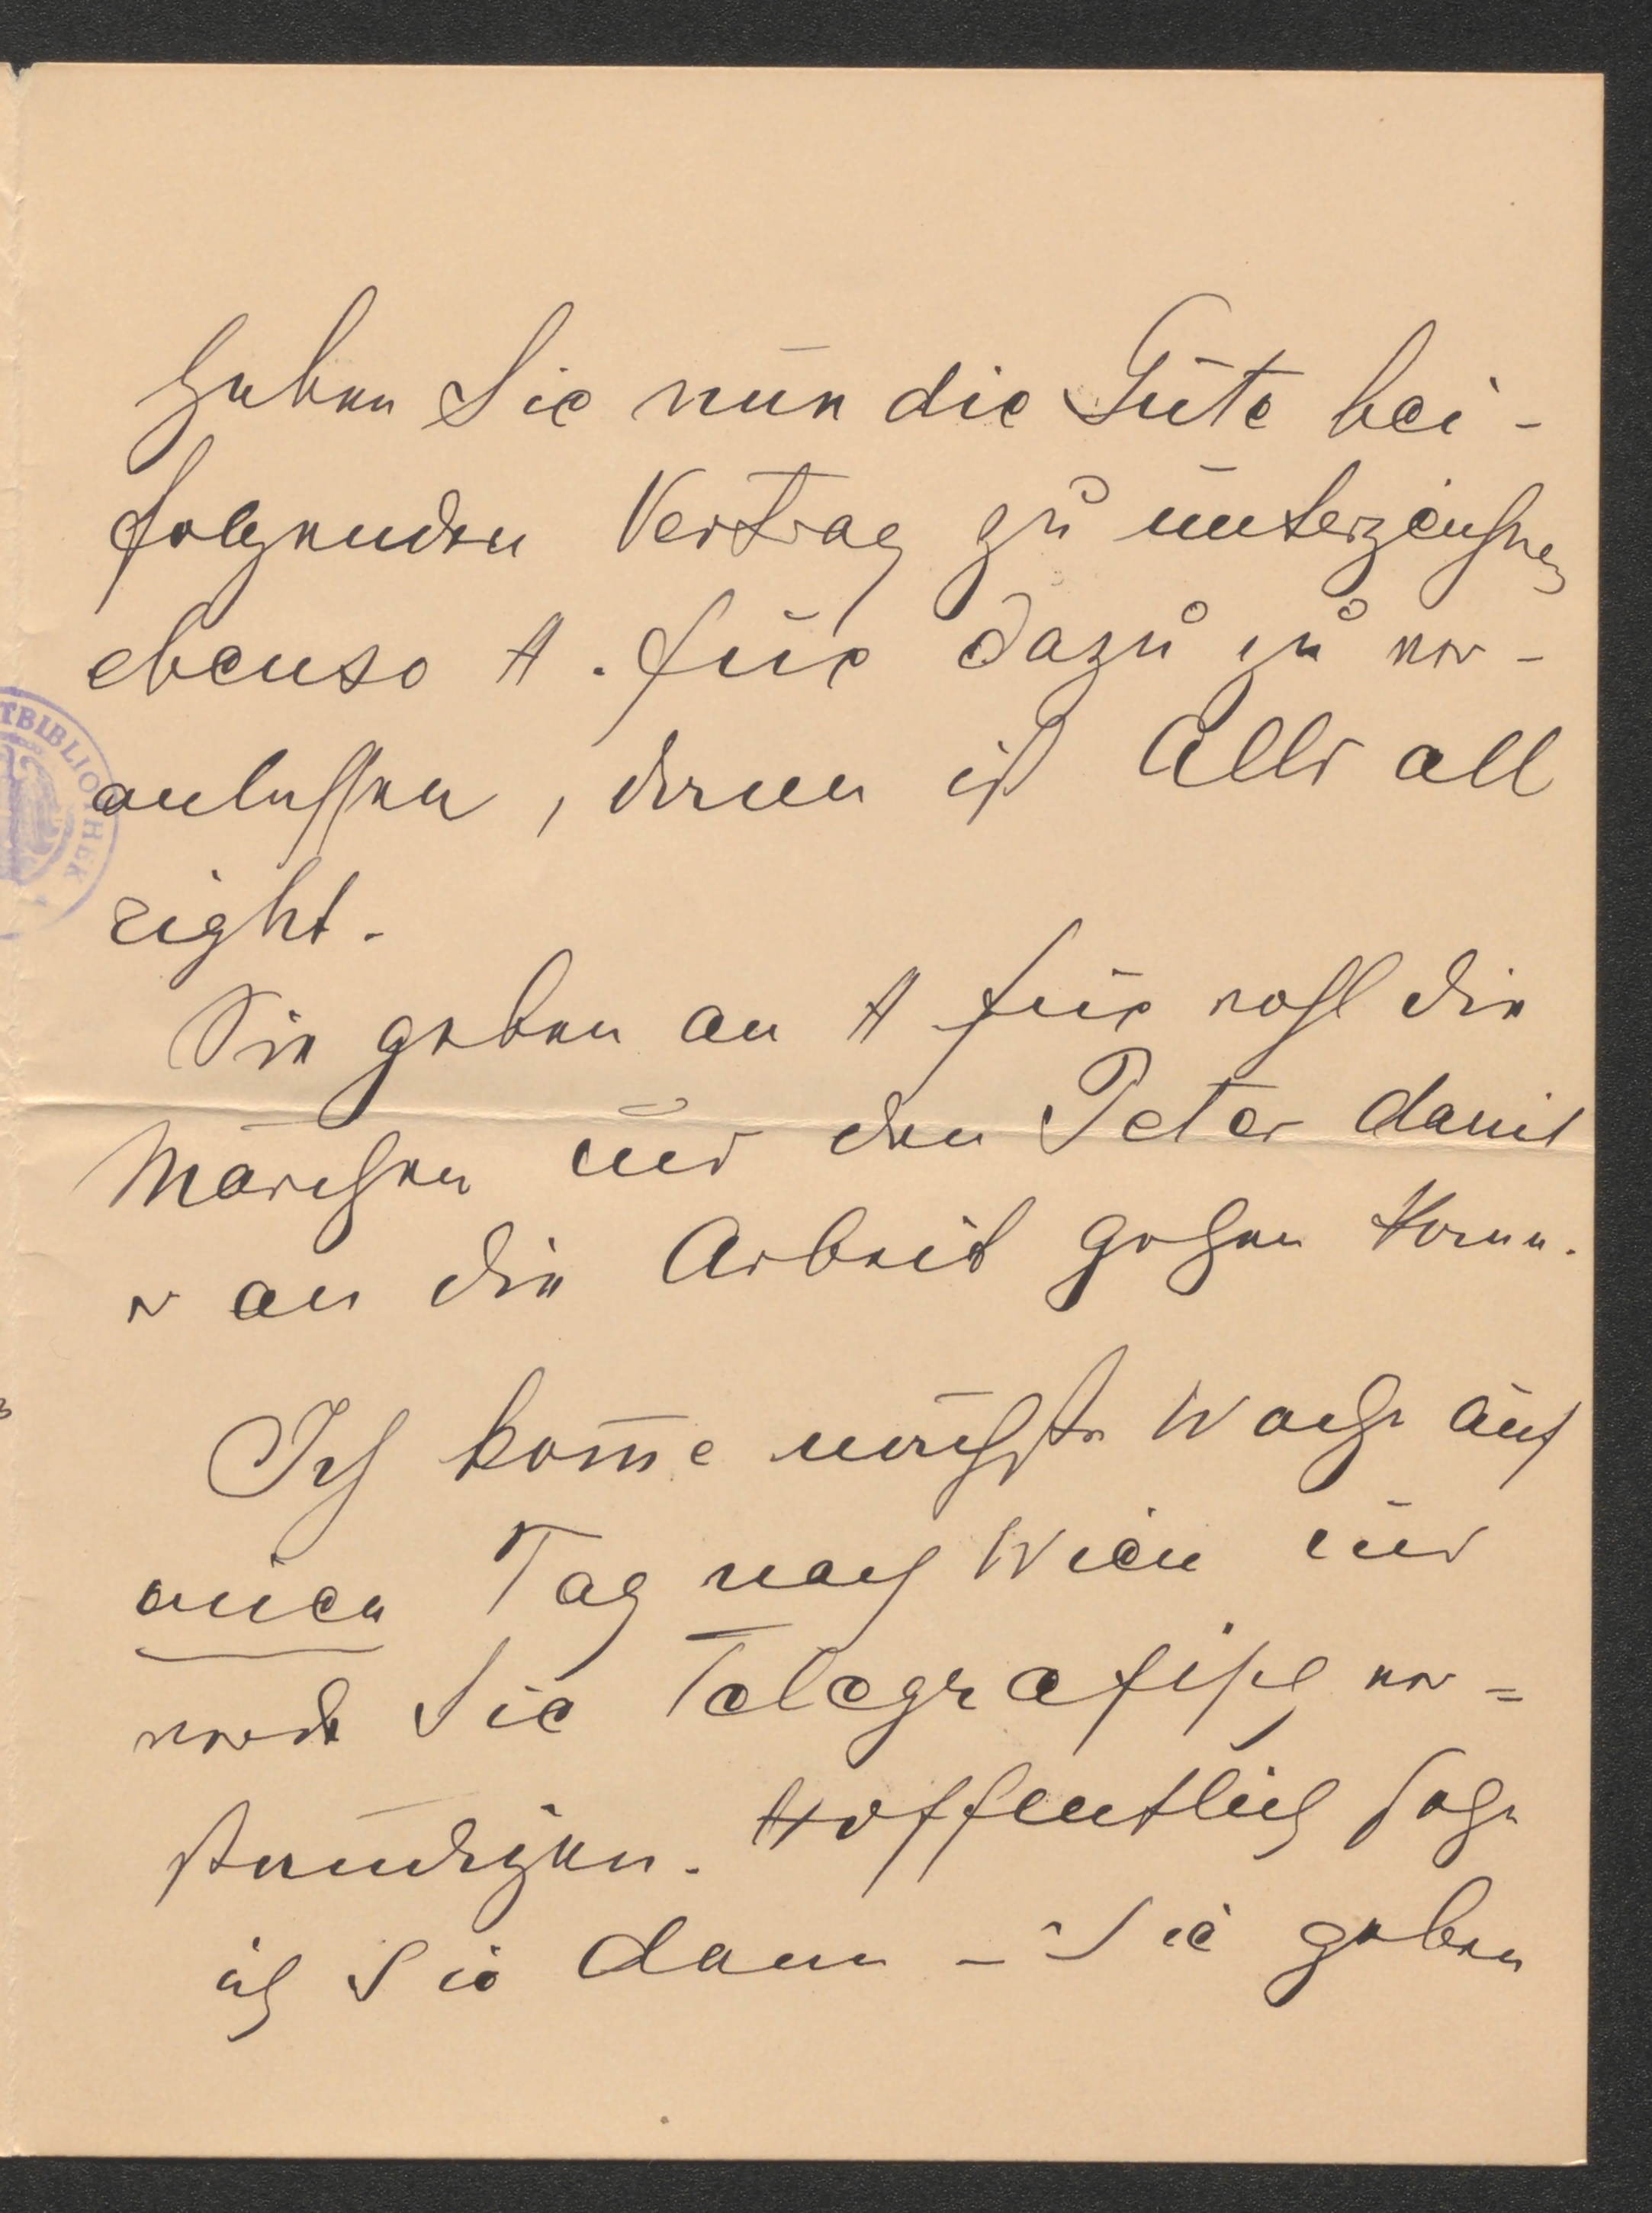 Haben Sie nun die Güte bei-
folgenden Vertrag zu unterzeichnen
ebenso H. Fux dazu zu ver-
anlassen, dann ist Alles all
right.
Sie geben an H Fux wohl die
Märchen und den Peter damit
er an die Arbeit gehen kann.
Ich kom̄e nächste Woche auf
einen Tag nach Wien und
werde Sie Telegrafisch ver=
ständigen. Hoffentlich sehe
ich Sie dann – Sie geben
TBIBLIOTHEK